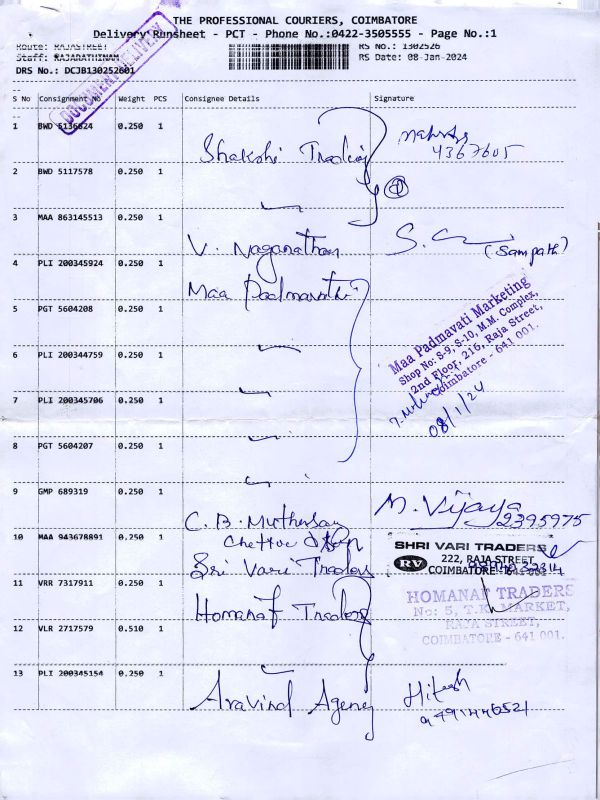 THE PROFESSIONAL COURIERS, COIMBATORE
Delivery Runsheet - PCT - Phone No.:0422-3505555 - Page No.:1
Route: RAJASTREET RS No.: 1302526
Staff: RAJARATHINAM RS Date: 08-Jan-2024
DRS No.: DCJB130252601
DOCUMENT DELIVERY
S No Consignment No Weight PCS Consignee Details Signature
1 BWD 5136624 0.250 1 Shakshi Trading
4367605
2 BWD 5117578 0.250 1
3 MAA 863145513 0.250 1 V. Naganathan S. (Sampath)
4 PLI 200345924 0.250 1 Maa Padmavathi
5 PGT 5604208 0.250 1
Maa Padmavati Marketing
Shop No: S-9, S-10, M.M. Complex,
2nd Floor, 216, Raja Street,
Coimbatore - 641 001.
6 PLI 200344759 0.250 1
7 PLI 200345706 0.250 1
08/1/24
8 PGT 5604207 0.250 1
9 GMP 689319 0.250 1 C. B. Muthusamy M. Vijaya
Chettiar 2395975
10 MAA 943678891 0.250 1 Sri Vari Traders
SHRI VARI TRADERS
RV 222, RAJA STREET
COIMBATORE - 641 001
11 VRR 7317911 0.250 1 Homanaf Traders
HOMANAF TRADERS
No: 5, T.K. MARKET,
RAJA STREET,
COIMBATORE - 641 001.
12 VLR 2717579 0.510 1
13 PLI 200345154 0.250 1 Aravind Agency Hitesh